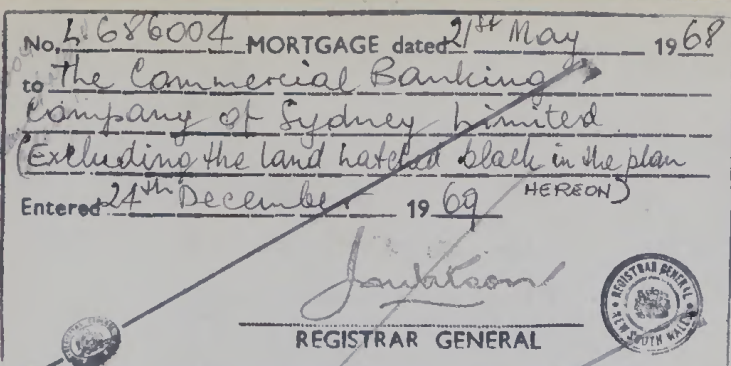 No. L 686004 MORTGAGE dated 21st May 1968
to The Commercial Banking
Company of Sydney Limited
(Excluding the land hatched black in the plan
HEREON)
Entered 24th December 1969
REGISTRAR GENERAL
REGISTRAR GENERAL
NEW SOUTH WALES